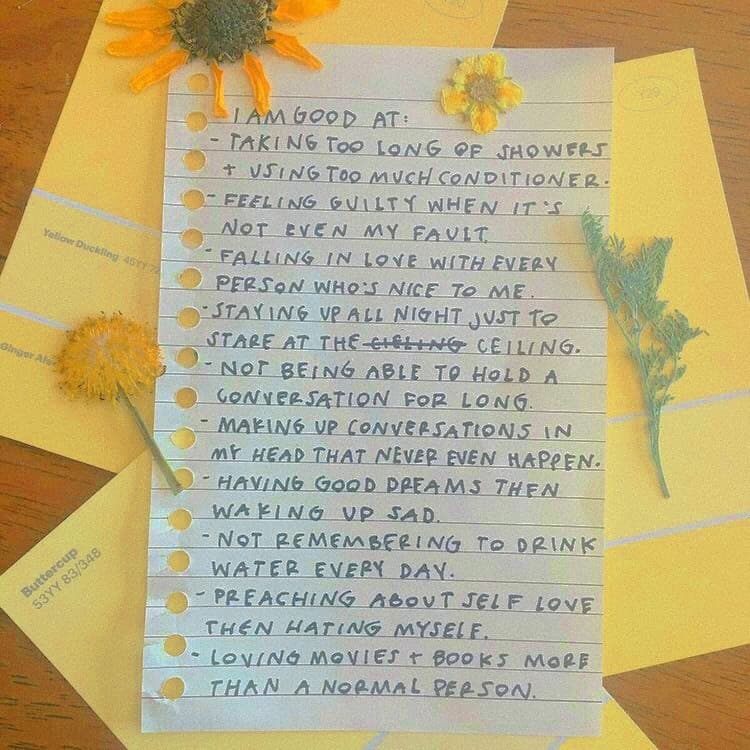 I AM GOOD AT:
- TAKING TOO LONG OF SHOWERS
+ USING TOO MUCH CONDITIONER.
- FEELING GUILTY WHEN IT'S
NOT EVEN MY FAULT.
- FALLING IN LOVE WITH EVERY
PERSON WHO'S NICE TO ME.
- STAYING UP ALL NIGHT JUST TO
STARE AT THE CIELING CEILING.
- NOT BEING ABLE TO HOLD A
CONVERSATION FOR LONG.
- MAKING UP CONVERSATIONS IN
MY HEAD THAT NEVER EVEN HAPPEN.
- HAVING GOOD DREAMS THEN
WAKING UP SAD.
- NOT REMEMBERING TO DRINK
WATER EVERY DAY.
- PREACHING ABOUT SELF LOVE
THEN HATING MYSELF.
- LOVING MOVIES + BOOKS MORE
THAN A NORMAL PERSON.
Yellow Duckling 45YY
Ginger Ale
Buttercup
53YY 83/348